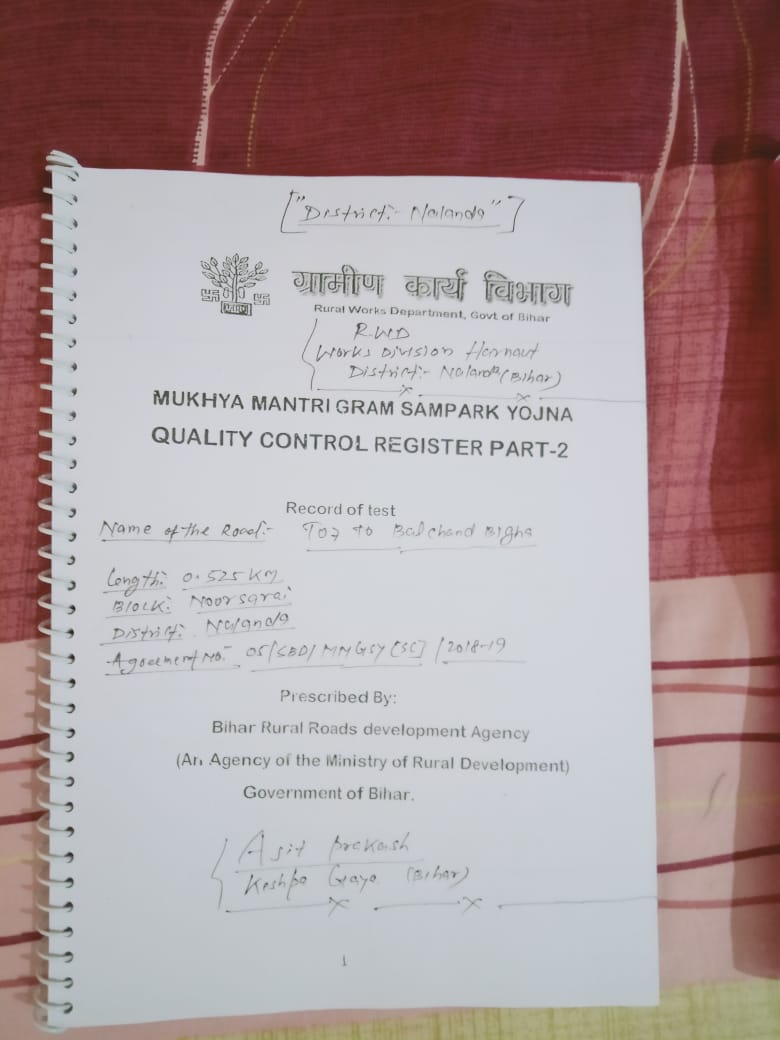 ["District:- Nalanda"]
ग्रामीण कार्य विभाग
Rural Works Department, Govt of Bihar
RWD
Works Division Harnaut
District:- Nalanda (Bihar)
MUKHYA MANTRI GRAM SAMPARK YOJNA
QUALITY CONTROL REGISTER PART-2
Record of test
Name of the Road:- T07 to Balchand Bigha
Length: 0.525 KM
Block: Noorsarai
District: Nalanda
Agreement No:- 05/SBD/MMGSY [SC] / 2018-19
Prescribed By:
Bihar Rural Roads development Agency
(An Agency of the Ministry of Rural Development)
Government of Bihar.
Asit Prakash
Keshpa Gaya (Bihar)
1